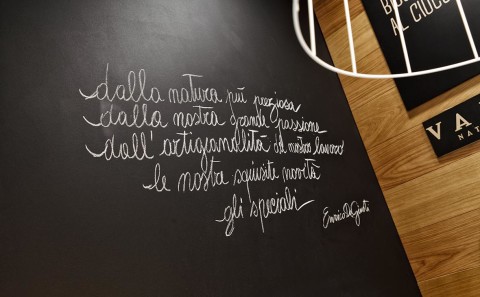 dalla natura più preziosa
dalla nostra grande passione
dall'artigianalità del nostro lavoro
le nostre squisite novità
gli speciali
AL CIOCC
VA
NAT